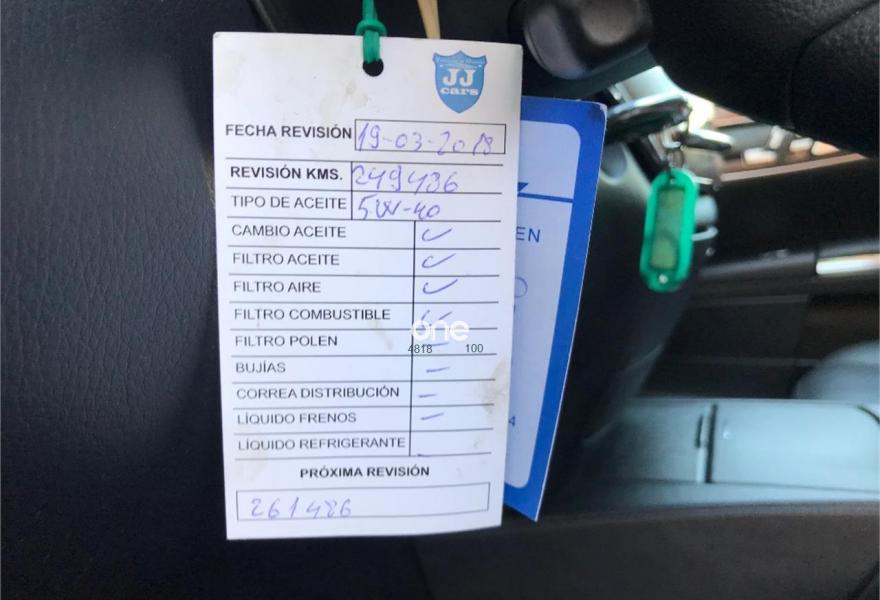 JJ
cars
FECHA REVISIÓN 19-03-2018
REVISIÓN KMS. 249486
TIPO DE ACEITE 5W-40
CAMBIO ACEITE ✓
FILTRO ACEITE ✓
FILTRO AIRE ✓
FILTRO COMBUSTIBLE
FILTRO POLEN –
BUJÍAS –
CORREA DISTRIBUCIÓN –
LÍQUIDO FRENOS –
LÍQUIDO REFRIGERANTE
PRÓXIMA REVISIÓN
261486
EN
4
one
4818 100